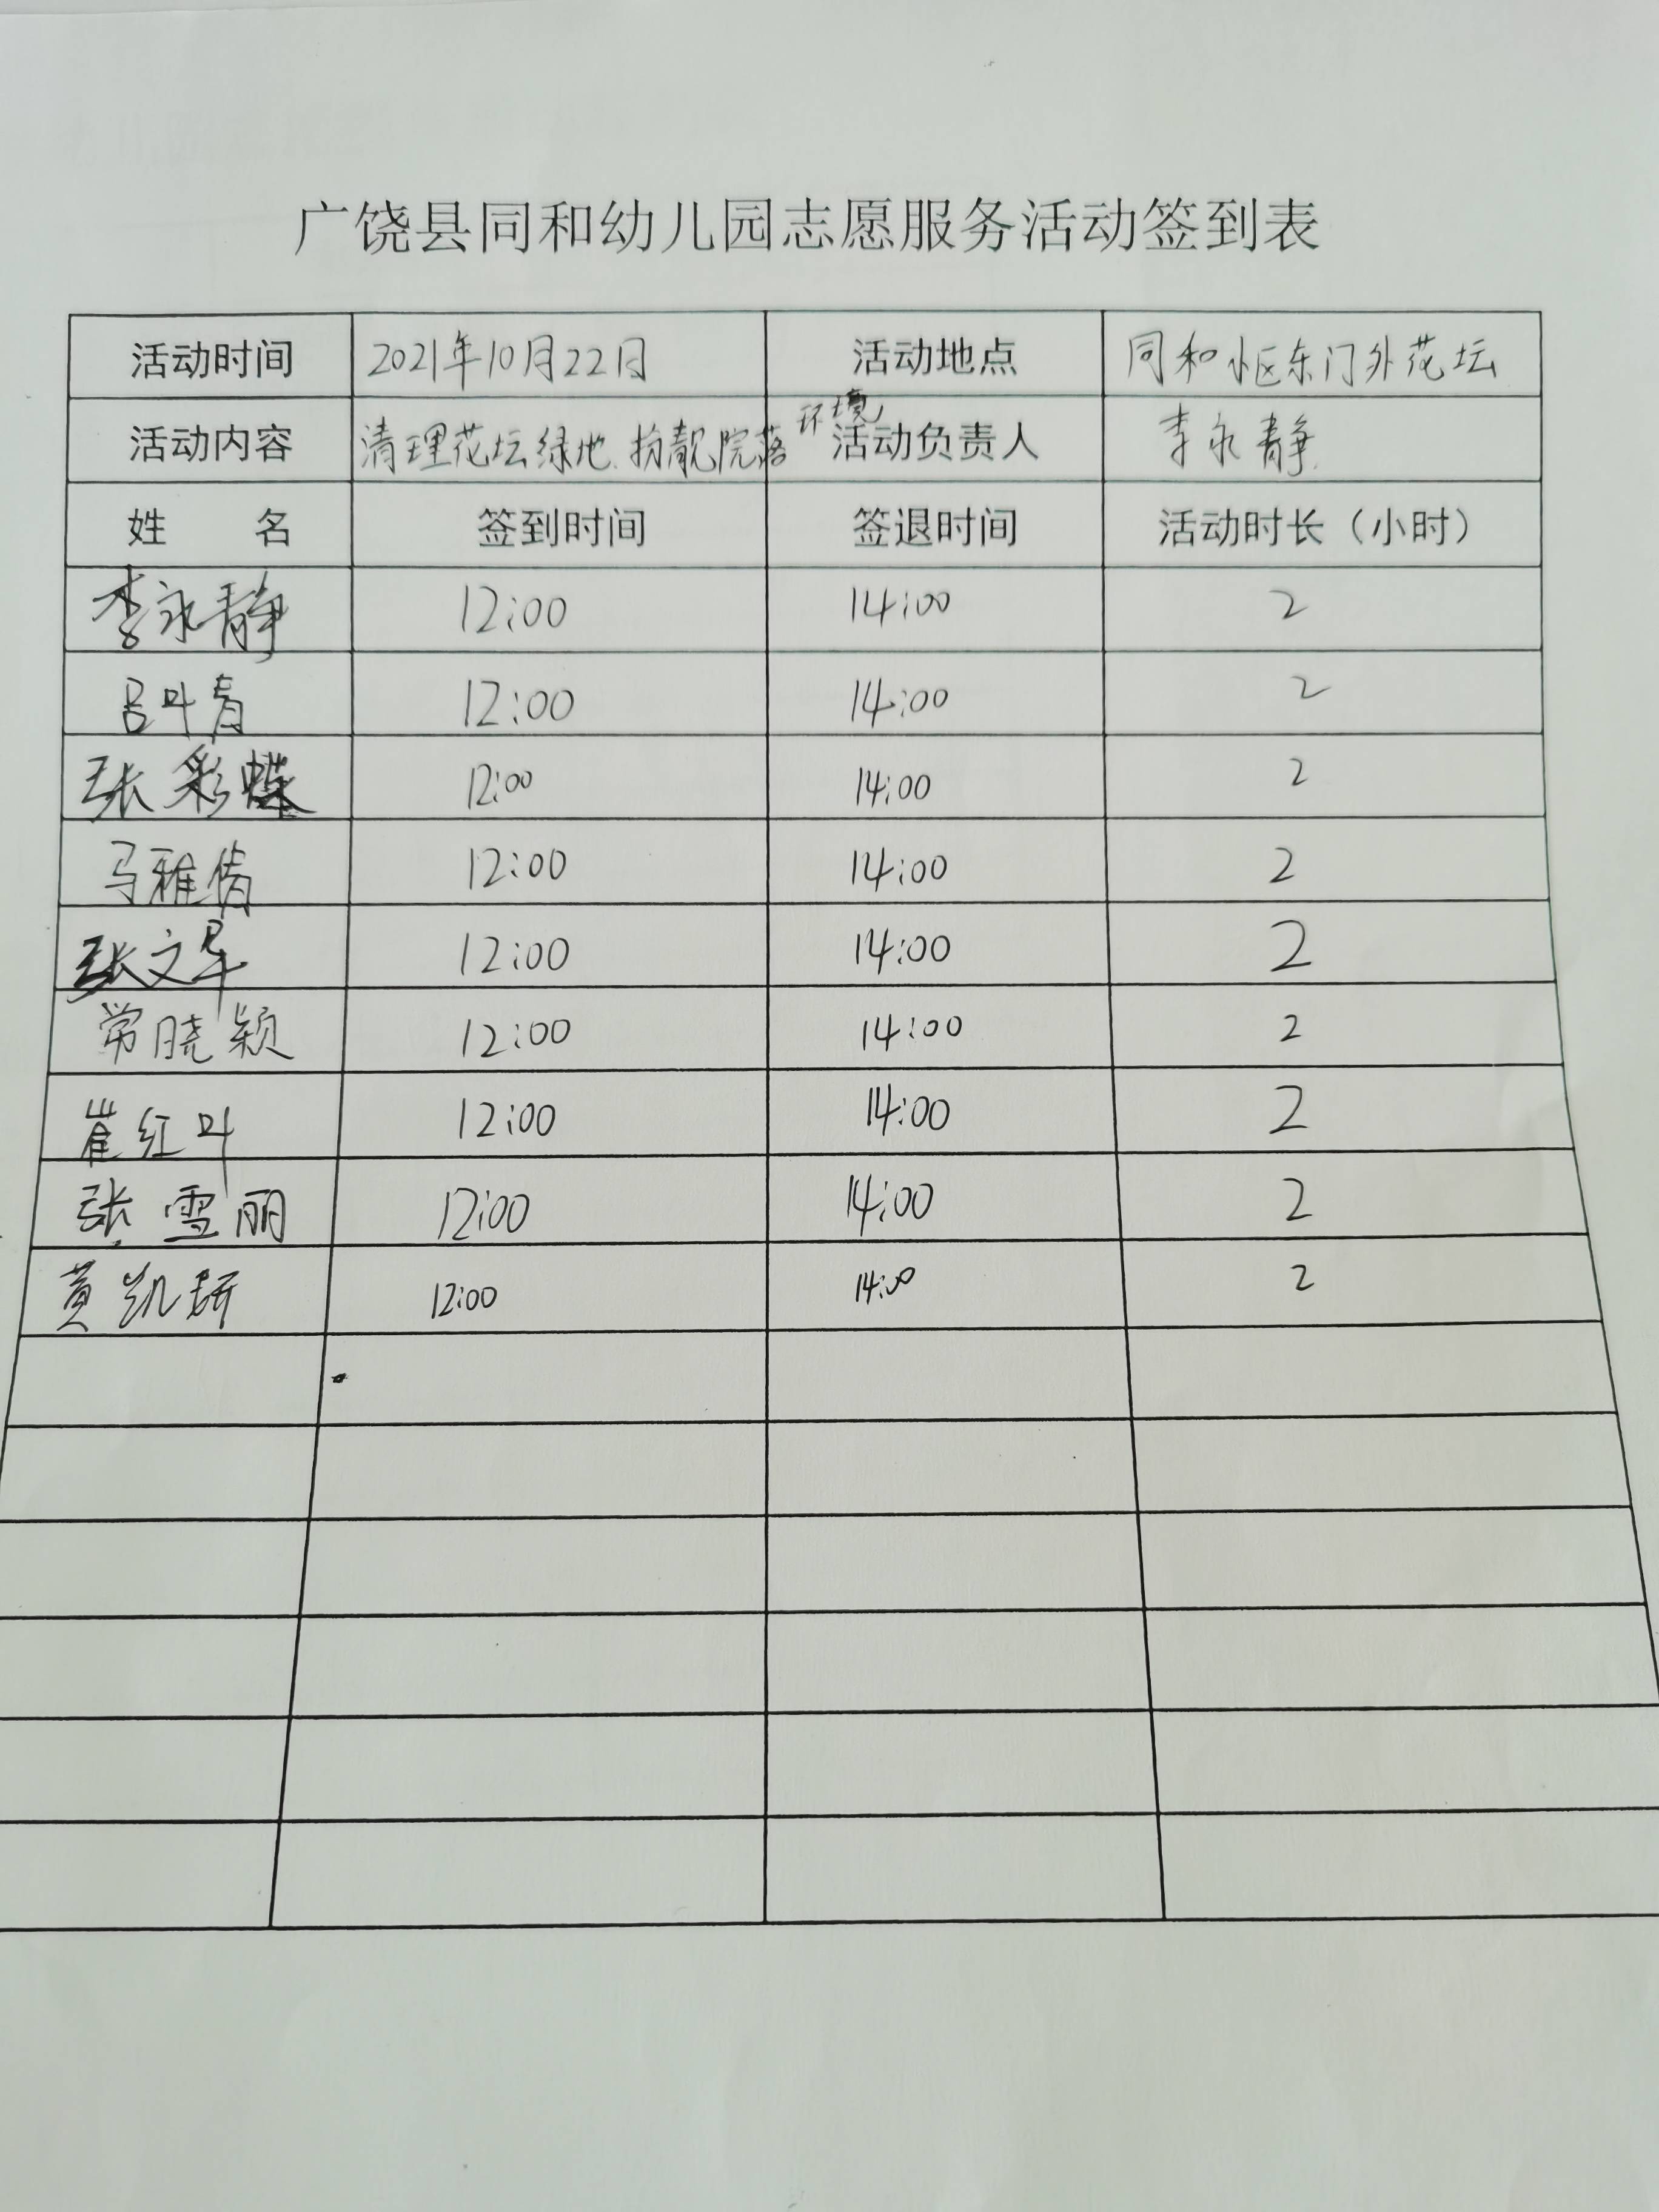 广饶县同和幼儿园志愿服务活动签到表
活动时间 2021年10月22日 活动地点 同和小区东门外花坛
活动内容 清理花坛绿地、扮靓院落环境 活动负责人 李永静
姓 名 签到时间 签退时间 活动时长（小时）
李永静 12:00 14:00 2
吕叶青 12:00 14:00 2
张彩蝶 12:00 14:00 2
马雅倩 12:00 14:00 2
张文 12:00 14:00 2
常晓颖 12:00 14:00 2
崔红叶 12:00 14:00 2
张雪丽 12:00 14:00 2
黄凯妍 12:00 14:00 2